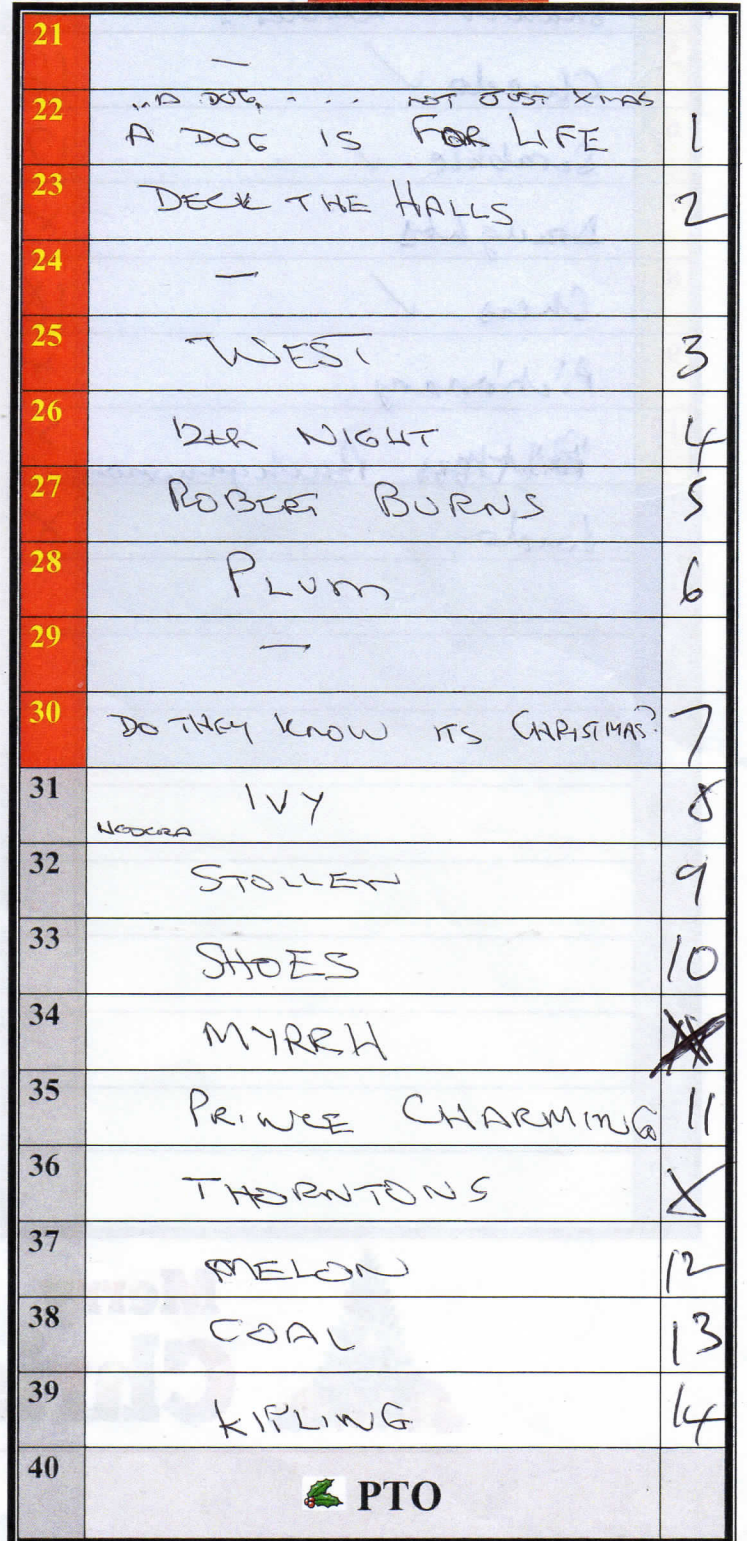 21 —
22 ..A DOG, . . . NOT JUST XMAS
A DOG IS FOR LIFE 1
23 DECK THE HALLS 2
24 —
25 WEST 3
26 12th NIGHT 4
27 ROBERT BURNS 5
28 PLUM 6
29 —
30 DO THEY KNOW ITS CHRISTMAS? 7
31 IVY 8
32 STOLLEN 9
33 SHOES 10
34 MYRRH
35 PRINCE CHARMING 11
36 THORNTONS X
37 MELON 12
38 COAL 13
39 KIPLING 14
40 PTO